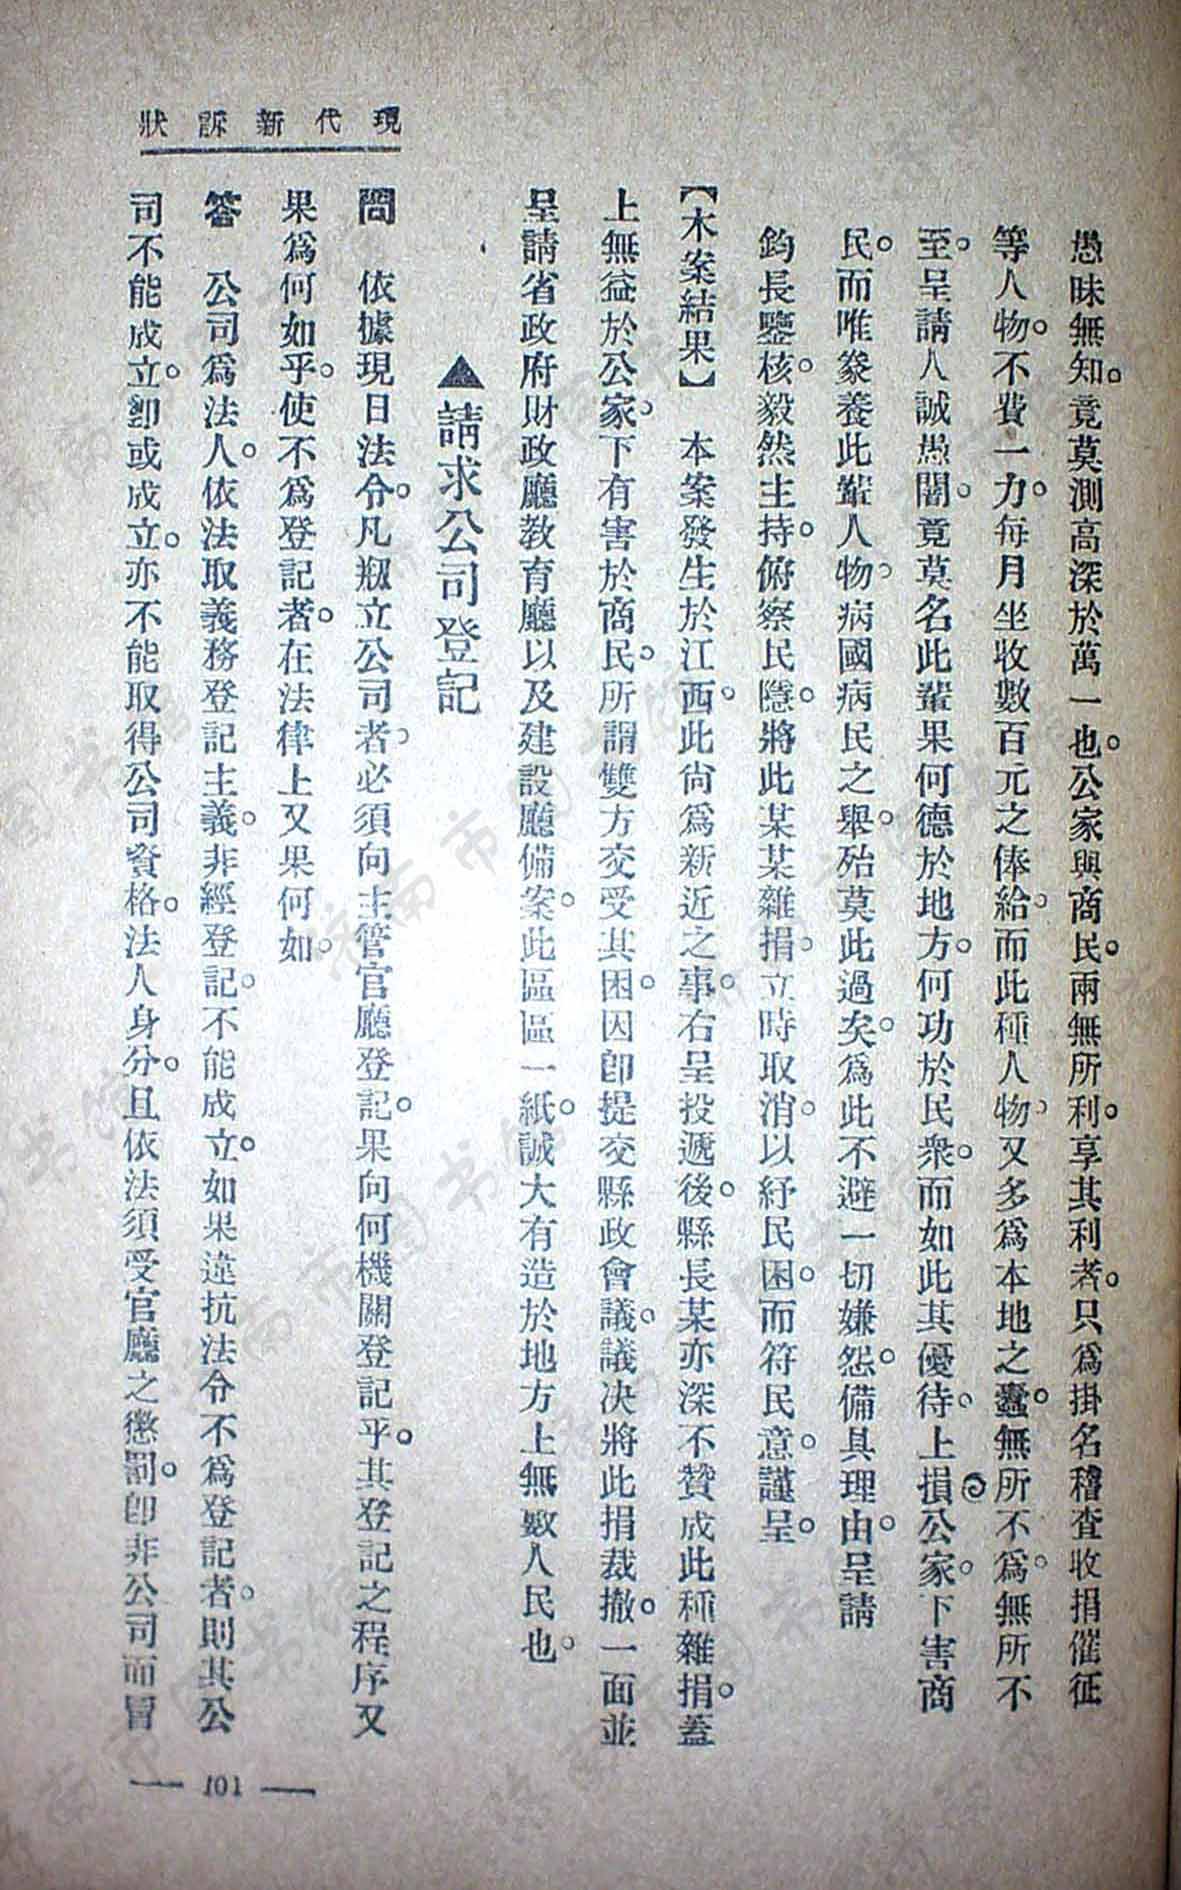 現代新訴狀
愚昧無知。竟莫測高深於萬一也。公家與商民。兩無所利。享其利者。只爲掛名稽查收捐催征
等人物。不費一力。每月坐收數百元之俸給。而此種人物。又多爲本地之蠹。無所不爲。無所不
至。呈請人誠愚闇。竟莫名此輩果何德於地方。何功於民衆。而如此其優待。上損公家。下害商
民。而唯豢養此輩人物。病國病民之舉。殆莫此過矣。爲此不避一切嫌怨。備具理由。呈請
鈞長鑒核。毅然主持。俯察民隱。將此某某雜捐。立時取消。以紓民困。而符民意。謹呈。
【木案結果】 本案發生於江西。此尙爲新近之事。右呈投遞後。縣長某亦深不贊成此種雜捐。蓋
上無益於公家。下有害於商民。所謂雙方交受其困。因卽提交縣政會議。議决將此捐裁撤。一面並
呈請省政府財政廳教育廳以及建設廳備案。此區區一紙。誠大有造於地方上無數人民也。
▲請求公司登記
問 依據現日法令。凡剏立公司者。必須向主管官廳登記。果向何機關登記乎。其登記之程序又
果爲何如乎。使不爲登記者。在法律上又果何如。
答 公司爲法人。依法取義務登記主義。非經登記。不能成立。如果違抗法令不爲登記者。則其公
司不能成立。卽或成立。亦不能取得公司資格。法人身分。且依法須受官廳之懲罰。卽非公司而冒
— 101 —
济南市图书馆